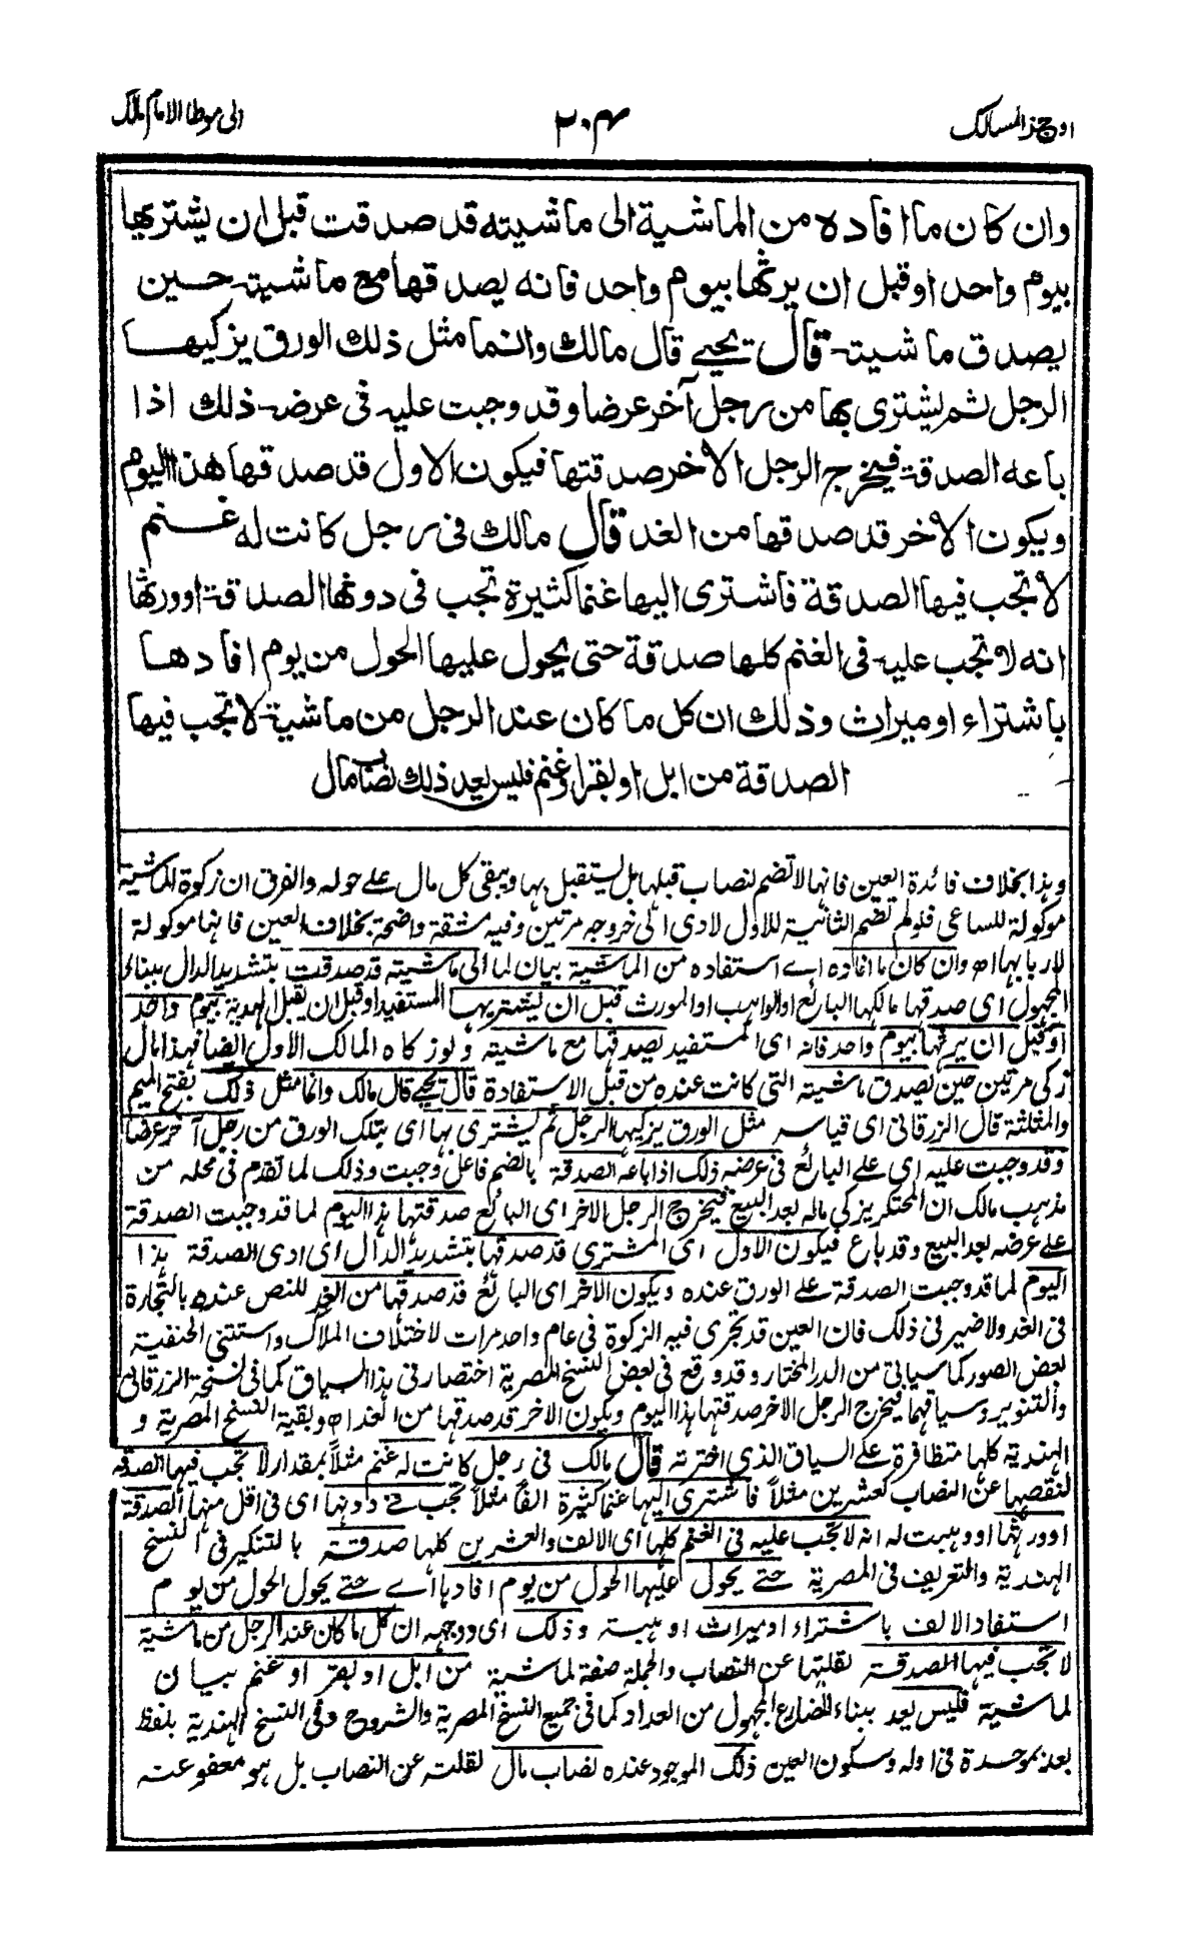 اوجز المسالك
٢٠٤
الى موطا الامام مالك
وان كان ما افاده من الماشية الى ماشيته قد صدقت قبل ان يشتريها
بيوم واحد او قبل ان يرثها بيوم واحد فانه يصدقها مع ماشيته حين
يصدق ماشيته قال يحيى قال مالك وانما مثل ذلك الورق يزكيها
الرجل ثم يشترى بها من رجل آخر عرضا وقد وجبت عليه فى عرضه ذلك اذا
باعه الصدقة فيخرج الرجل الاخر صدقتها فيكون الاول قد صدقها هذا اليوم
ويكون الاخر قد صدقها من الغد قال مالك فى رجل كانت له غنم
لا تجب فيها الصدقة فاشترى اليها غنما كثيرة تجب فى دونها الصدقة او ورثها
انه لا تجب عليه فى الغنم كلها صدقة حتى يحول عليها الحول من يوم افادها
باشتراء او ميراث وذلك ان كل ما كان عند الرجل من ماشية لا تجب فيها
الصدقة من ابل او بقر او غنم فليس يعد ذلك نصاب مال
وهذا بخلاف فائدة العين فانها لا تضم لنصاب قبلها بل يستقبل بها ويبقى كل مال على حوله والفرق ان زكوة الماشية
موكولة للساعى فلو لم تضم الثانية للاول لادى الى خروجه مرتين وفيه مشقة واضحة بخلاف العين فانها موكولة
لاربابها اه وان كان ما افاده اى استفاده من الماشية بيان لما الى ماشيته قد صدقت بتشديد الدال ببناء
المجهول اى صدقها مالكها البائع او الواهب او المورث قبل ان يشتريها المستفيد او قبل ان يقبل الهدية بيوم واحد
او قبل ان يرثها بيوم واحد فانه اى المستفيد يصدقها مع ماشيته ولو زكاه المالك الاول ايضا فهذا مال
زكى مرتين حين يصدق ماشيته التى كانت عنده من قبل الاستفادة قال يحيى قال مالك وانما مثل ذلك بفتح الميم
والمثلثة قال الزرقانى اى قياسه مثل الورق يزكيها الرجل ثم يشترى بها اى بتلك الورق من رجل آخر عرضا
وقد وجبت عليه اى على البائع فى عرضه ذلك اذا باعه الصدقة بالضم فاعل وجبت وذلك لما تقدم فى محله من
مذهب مالك ان المحتكر يزكى ماله بعد البيع فيخرج الرجل الاخر اى البائع صدقتها هذا اليوم لما قد وجبت الصدقة
على عرضه بعد البيع وقد باع فيكون الاول اى المشترى قد صدقها بتشديد الدال اى ادى الصدقة هذا
اليوم لما قد وجبت الصدقة على الورق عنده ويكون الاخر اى البائع قد صدقها من الغد للنص عنده بالتجارة
فى الغد ولا ضير فى ذلك فان العين قد تجرى فيه الزكوة فى عام واحد مرات لاختلاف الملاك واستثنى الحنفية
بعض الصور كما سياتى من الدر المختار وقد وقع فى بعض النسخ المصرية اختصار فى هذا السياق كما فى نسخة الزرقانى
والتنوير وسياقهما فيخرج الرجل الاخر صدقتها هذا اليوم ويكون الاخر قد صدقها من الغد اه وبقية النسخ المصرية و
الهندية كلها متظافرة على السياق الذى اخترته قال مالك فى رجل كانت له غنم مثلا بمقدار لا تجب فيها الصدقة
لنقصها عن النصاب كعشرين مثلا فاشترى اليها غنما كثيرة الفا مثلا تجب فى دونها اى فى اقل منها الصدقة
او ورثها او وهبت له انه لا تجب عليه فى الغنم كلها اى الالف والعشرين كلها صدقة بالتنكير فى النسخ
الهندية والتعريف فى المصرية حتى يحول عليها الحول من يوم افادها اى حتى يحول الحول من يوم
استفاد الالف باشتراء او ميراث او هبة وذلك اى ووجهه ان كل ما كان عند الرجل من ماشية
لا تجب فيها الصدقة لقلتها عن النصاب والجملة صفة لماشية من ابل او بقر او غنم بيان
لماشية فليس يعد ببناء المضارع المجهول من العداد كما فى جميع النسخ المصرية والشروح وفى النسخ الهندية بلفظ
بعد بموحدة فى اوله وسكون العين ذلك الموجود عنده نصاب مال لقلته عن النصاب بل هو معفو عنه